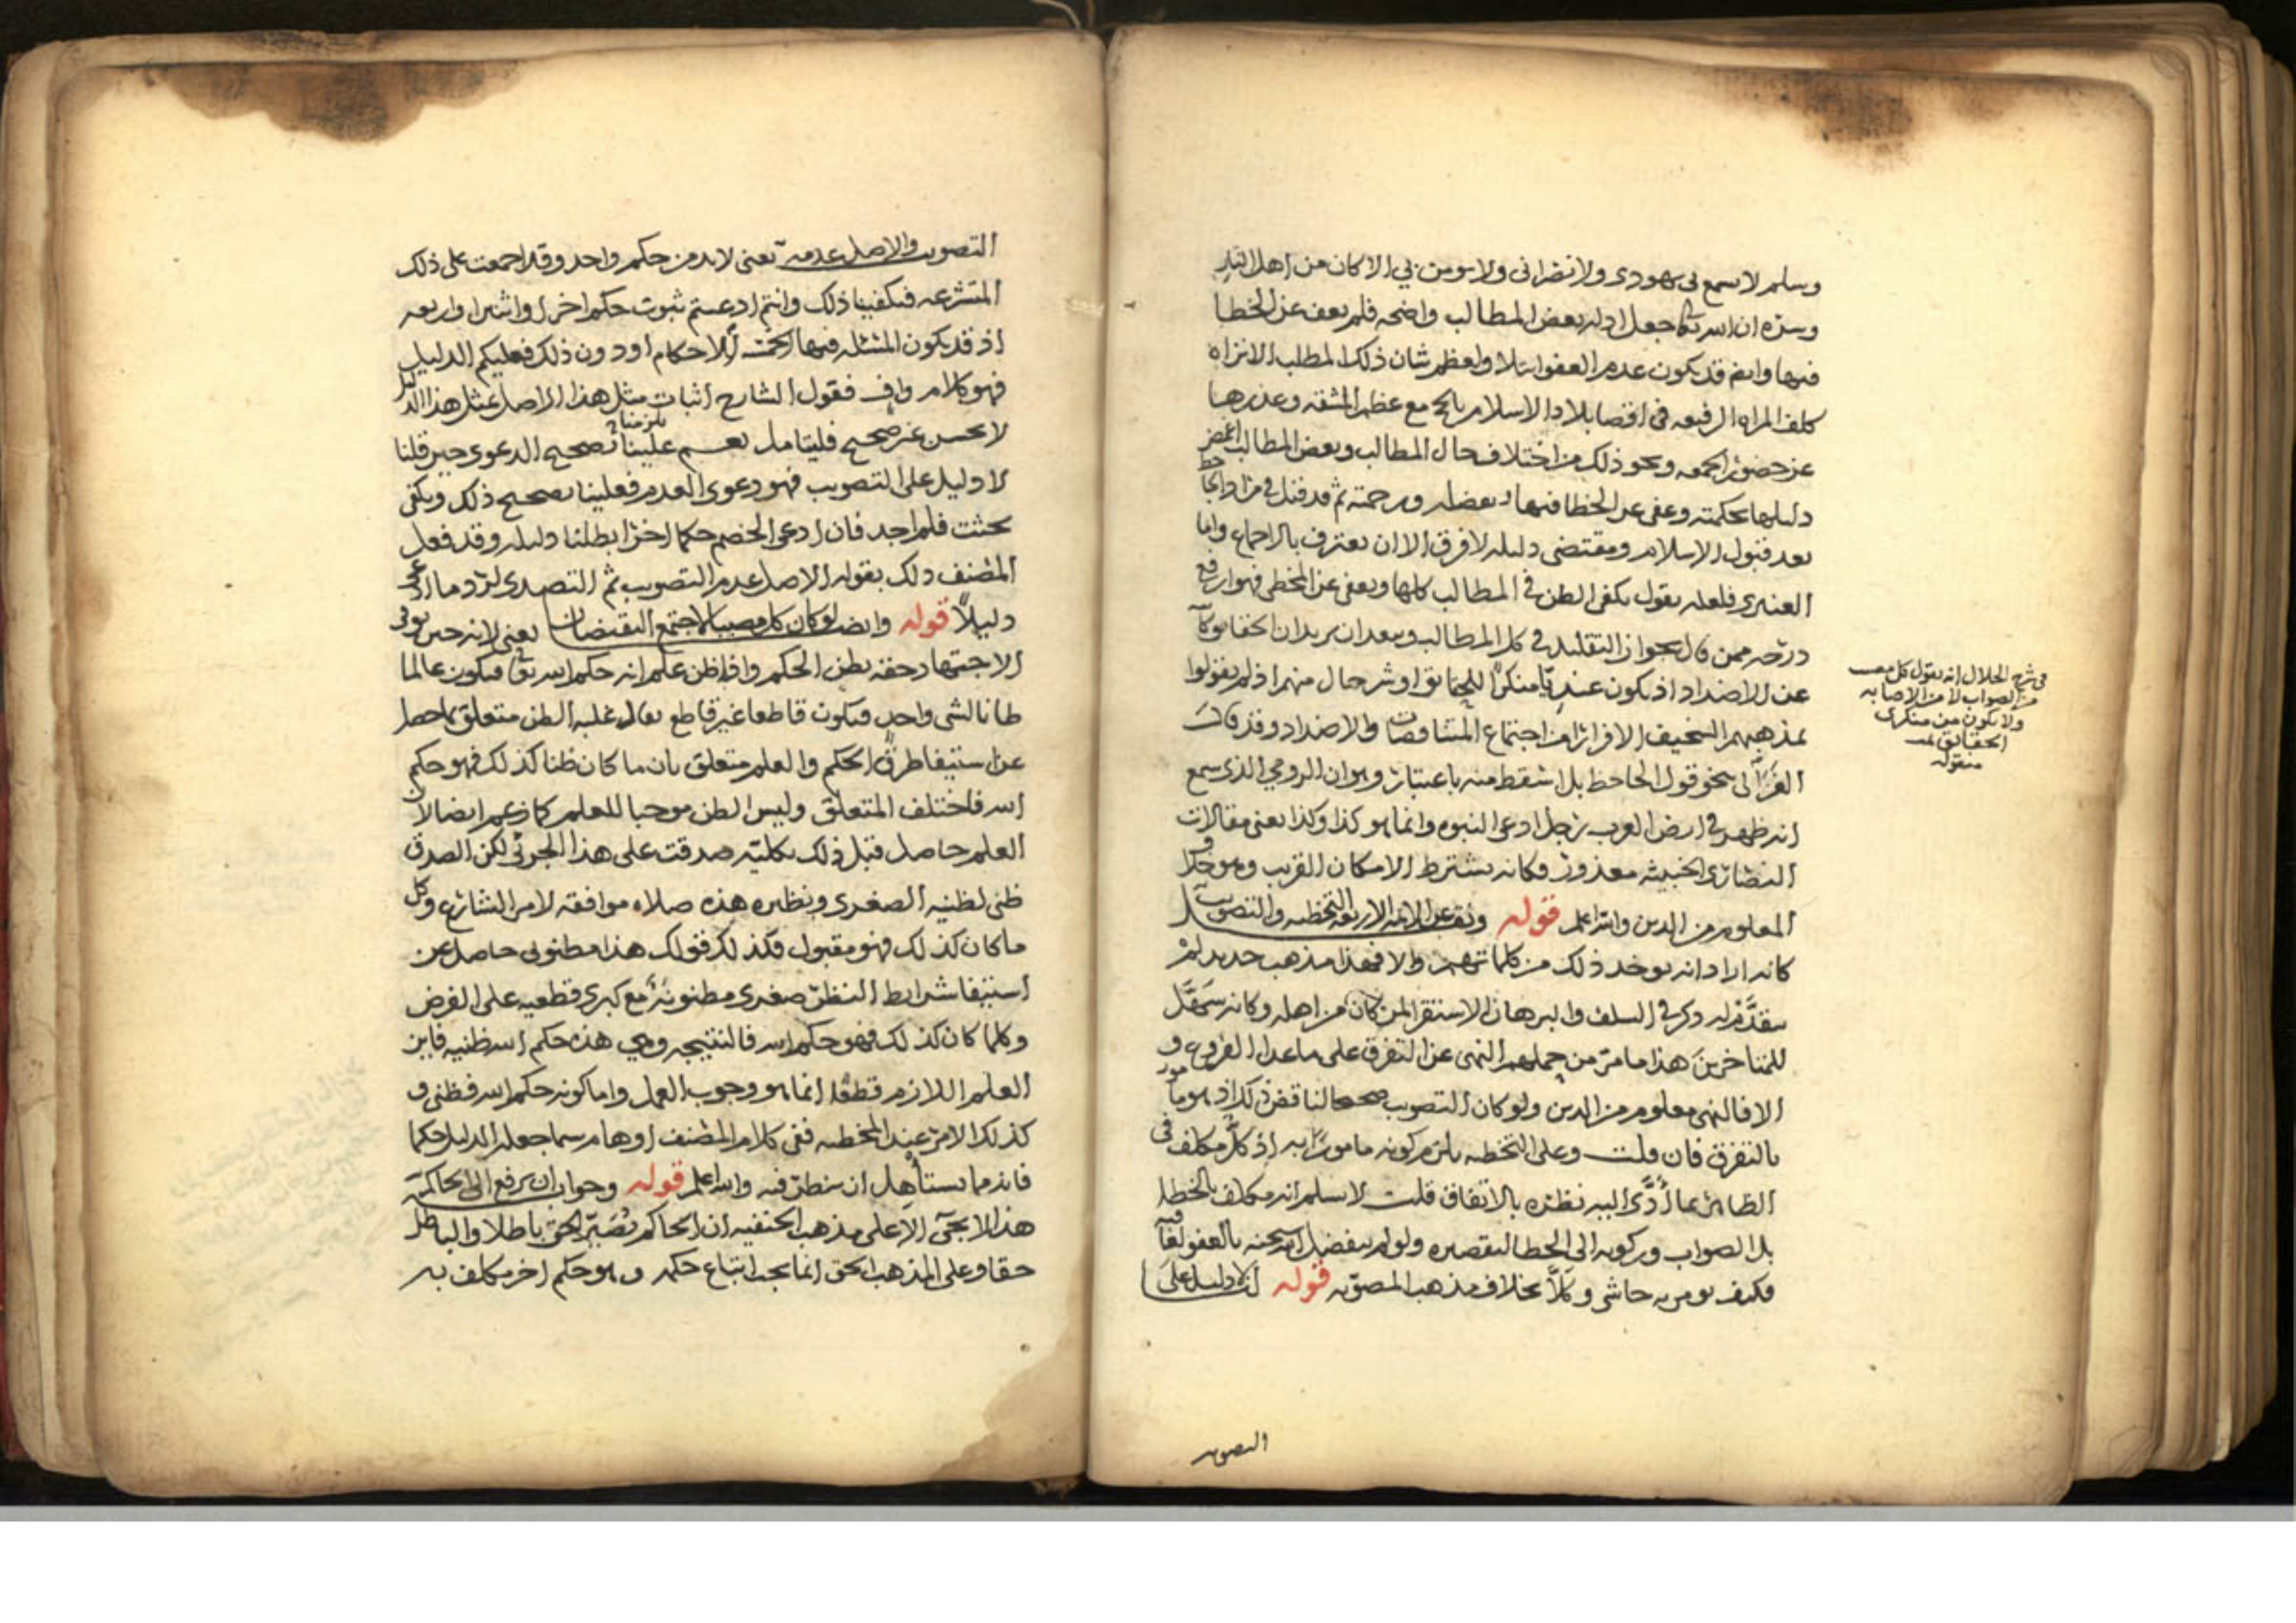 وسلم لا يسمع بي يهودي ولا نصراني ولا يومن بي الا كان من اهل النار
وسره ان الله تعالى جعل ادله بعض المطالب واضحه فلم يعف عن الخطا
فيها وايضا قد يكون عدم العفو ابتلا ولعظم شان ذلك المطلب الا تراه
كلف المراه الرفيعه في اقصا بلاد الاسلام بالحج مع عظم المشقه وعذرها
عن حضور الجمعه ونحو ذلك من اختلاف حال المطالب وبعض المطالب اغمض
دليلها بحكمته وعفى عن الخطا فيها بفضله ورحمته ثم قد قيل في مراد الجاحظ
بعد قبول الاسلام ومقتضى دليله لا فرق الا ان يعترف بالاجماع واما
العنبري فلعله يقول يكفي الظن في المطالب كلها ويعفى عن المخطي فهو ارفع
درجه ممن قال بجواز التقليد في كل المطالب ويبعد ان يريد ان الحقايق
عن الاضداد اذ يكون عنديا منكرا للحقايق او شر حال منهم اذ لم يقولوا
بمذهبهم السخيف الا فرارا من اجتماع المتناقضات والاضداد وقد قارب
الغزالي نحو قول الجاحظ بل اسقط منه باعتبار وهو ان الرومي الذي سمع
انه ظهر في ارض العرب رجل ادعى النبوه وانما هو كذا وكذا يعني مقالات
النصارى الخبيثه معذور وكانه يشترط الامكان القريب وهو خلاف
المعلوم من الدين والله اعلم قوله ونقل عن الايمه الاربعه التخطيه والتصويب
كانه اراد انه يوخذ ذلك من كلماتهم والا فهذا مذهب حديد لم
يتقدم له ذكر في السلف والبرهان الاستقرا لمن كان من اهله وكانه سهل
للمتاخرين هذا ما مر من حملهم النهي عن التفرق على ما عدا الفروع و
الا فالنهي معلوم من الدين ولو كان التصويب صحيحا لناقض ذلك اذ هو مامور
بالتفرق فان قلت وعلى التخطيه يلزم كونه مامورا به اذ كل مكلف في
الظاهر بما ادى اليه نظره بالاتفاق قلت لا نسلم انه مكلف بالخطا
بل الصواب وركونه الى الخطا لتقصيره ولو لم يتفضل الله سبحنه بالعفو لعاقبه
فكيف يومر به حاشى وكلا بخلاف مذهب المصوبه قوله لنا لا دليل على
التصويب
في شرح الجلال انه يقول كل مصيب
من الصواب لا من الاصابه
ولا يكون من منكري
الحقايق تمت
منقوله
التصويب والاصل عدمه يعني لا بد من حكم واحد وقد اجمعت على ذلك
المتشرعه فيكفينا ذلك وانتم ادعيتم ثبوت حكم اخر او اثنين او اربعه
اذ قد يكون المسئله فيها الخمسه الاحكام او دون ذلك فعليكم الدليل
فهو كلام واف فقول الشارح اثبات مثل هذا الاصل بمثل هذا الدليل
لا يحسن غير صحيح فليتامل نعم علينا تصحيح الدعوى حين قلنا
يلزمنا
لا دليل على التصويب فهو دعوى العدم فعلينا تصحيح ذلك ويكفي
بحثت فلم اجد فان ادعى الخصم حكما اخر ابطلنا دليله وقد فعل
المصنف ذلك بقوله الاصل عدم التصويب ثم التصدي لرد ما ادعى
دليلا قوله وايضا لو كان كل مصيبا لاجتمع النقيضان يعني لانه حين يوفي
الاجتهاد حقه يظن الحكم واذا ظن علم انه حكم الله تعالى فيكون عالما
ظانا لشي واحد فيكون قاطعا غير قاطع يقال عليه الظن متعلق بما حصل
عن استيفا طرق الحكم والعلم متعلق بان ما كان ظنا كذلك فهو حكم
الله فاختلف المتعلق وليس الظن موجبا للعلم كما زعم ايضا لان
العلم حاصل قبل ذلك بكليته صدقت على هذا الجزئي لكن الصدق
ظني لظنيه الصغرى ونظيره هذه صلاه موافقه لامر الشارع وكل
ما كان كذلك فهو مقبول فكذلك قولك هذا مظنوني حاصل عن
استيفا شرايط النظر صغرى مظنونه مع كبرى قطعيه على الفرض
وكلما كان كذلك فهو حكم الله فالنتيجه وهي هذه حكم الله ظنيه فاين
العلم اللازم قطعا انما هو وجوب العمل واما كونه حكم الله فظني و
كذلك الامر عند المخطيه ففي كلام المصنف اوهام سيما جعله الدليل حكما
فانه مما يستاهل ان ينظر فيه والله اعلم قوله وجواب ان يرفع الى الحاكم
هذا لا يجيء الا على مذهب الحنفيه ان الحاكم يصير الحق باطلا والباطل
حقا وعلى المذهب الحق انما يجب اتباع حكمه وهو حكم اخر مكلف به